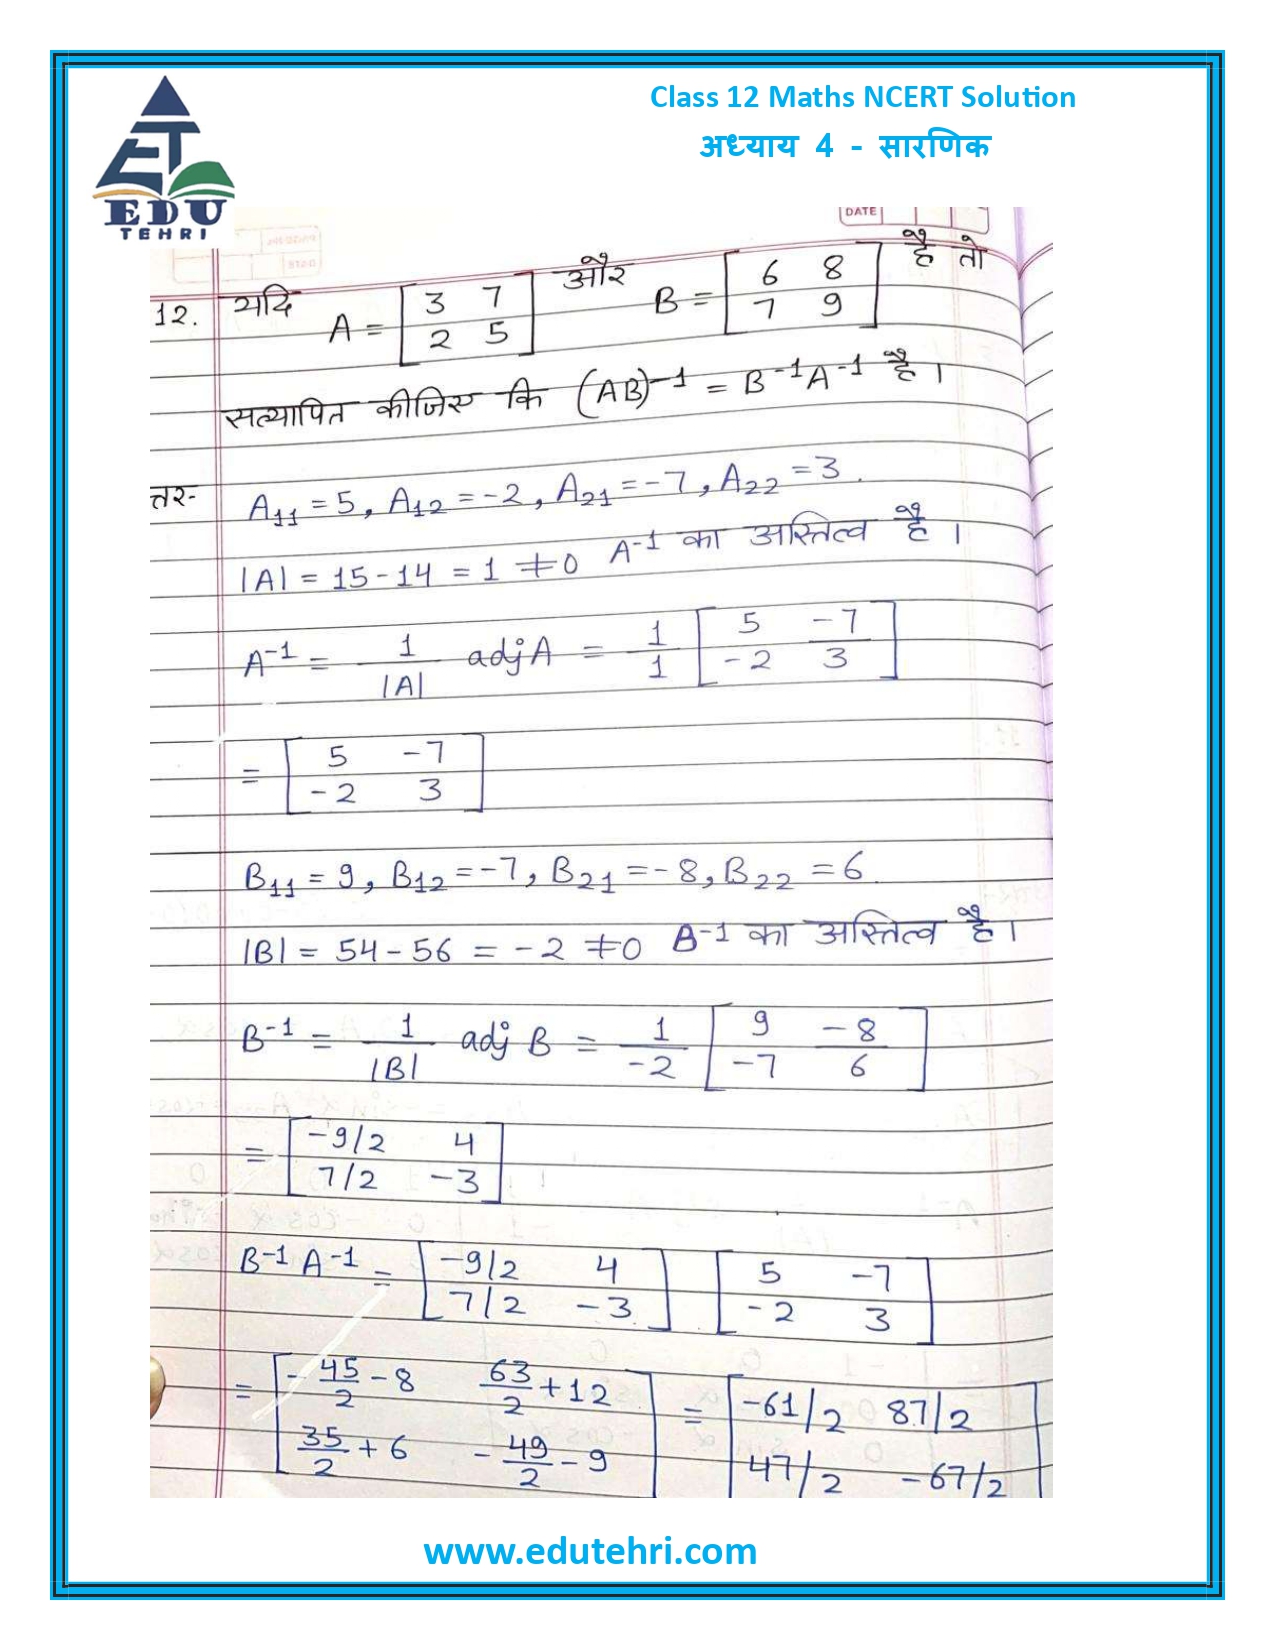 Class 12 Maths NCERT Solution
अध्याय 4 - सारणिक
EDU
TEHRI
DATE
12. यदि A = [3 7 और B = [6 8 है तो
2 5] 7 9]
सत्यापित कीजिए कि (AB)⁻¹ = B⁻¹A⁻¹ है।
त्तर- A₁₁ = 5, A₁₂ = -2, A₂₁ = -7, A₂₂ = 3.
|A| = 15 - 14 = 1 ≠ 0 A⁻¹ का अस्तित्व है।
A⁻¹ = 1/|A| adj A = 1/1 [5 -7
-2 3]
= [5 -7
-2 3]
B₁₁ = 9, B₁₂ = -7, B₂₁ = -8, B₂₂ = 6.
|B| = 54 - 56 = -2 ≠ 0 B⁻¹ का अस्तित्व है।
B⁻¹ = 1/|B| adj B = 1/-2 [9 -8
-7 6]
= [-9/2 4
7/2 -3]
B⁻¹ A⁻¹ = [-9/2 4 [5 -7
7/2 -3] -2 3]
= [-45/2 - 8 63/2 + 12 = [-61/2 87/2
35/2 + 6 -49/2 - 9] 47/2 -67/2]
www.edutehri.com